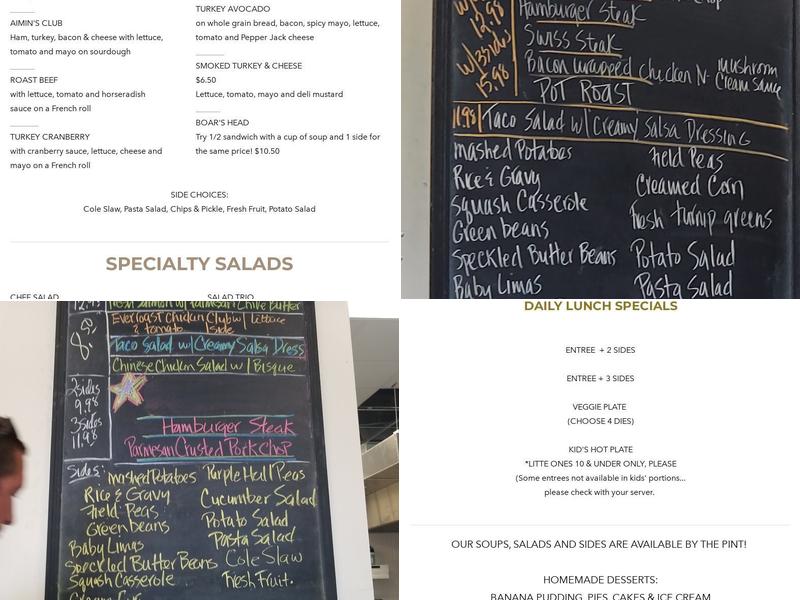 AIMIN'S CLUB
Ham, turkey, bacon & cheese with lettuce,
tomato and mayo on sourdough
ROAST BEEF
with lettuce, tomato and horseradish
sauce on a French roll
TURKEY CRANBERRY
with cranberry sauce, lettuce, cheese and
mayo on a French roll
TURKEY AVOCADO
on whole grain bread, bacon, spicy mayo, lettuce,
tomato and Pepper Jack cheese
SMOKED TURKEY & CHEESE
$6.50
Lettuce, tomato, mayo and deli mustard
BOAR'S HEAD
Try 1/2 sandwich with a cup of soup and 1 side for
the same price! $10.50
SIDE CHOICES:
Cole Slaw, Pasta Salad, Chips & Pickle, Fresh Fruit, Potato Salad
SPECIALTY SALADS
CHEF SALAD
SALAD TRIO
12.98
W/3sides
15.98
Hamburger Steak
Swiss Steak
Bacon wrapped chicken N- mushroom
Cream Sauce
POT ROAST
11.98 Taco Salad w/ Creamy Salsa Dressing
mashed Potatoes
Rice & Gravy
Squash Casserole
Green beans
Speckled Butter Beans
Baby Limas
Field Peas
Creamed Corn
fresh turnip greens
Potato Salad
Pasta Salad
Fresh Salmon w/ Parmesan Chive Butter
Everroast Chicken Club w/ lettuce
& tomato 1 side
Taco Salad w/ Creamy Salsa Dress
Chinese Chicken Salad w/ Bisque
2sides
9.98
3sides
11.98
Hamburger Steak
Parmesan Crusted Pork Chop
Sides:
mashed Potatoes
Rice & Gravy
Field Peas
Green beans
Baby Limas
Speckled Butter Beans
Squash Casserole
Purple Hull Peas
Cucumber Salad
Potato Salad
Pasta Salad
Cole Slaw
Fresh Fruit.
DAILY LUNCH SPECIALS
ENTREE + 2 SIDES
ENTREE + 3 SIDES
VEGGIE PLATE
(CHOOSE 4 DIES)
KID'S HOT PLATE
*LITTE ONES 10 & UNDER ONLY, PLEASE
(Some entrees not available in kids' portions...
please check with your server.
OUR SOUPS, SALADS AND SIDES ARE AVAILABLE BY THE PINT!
HOMEMADE DESSERTS:
BANANA PUDDING, PIES, CAKES & ICE CREAM